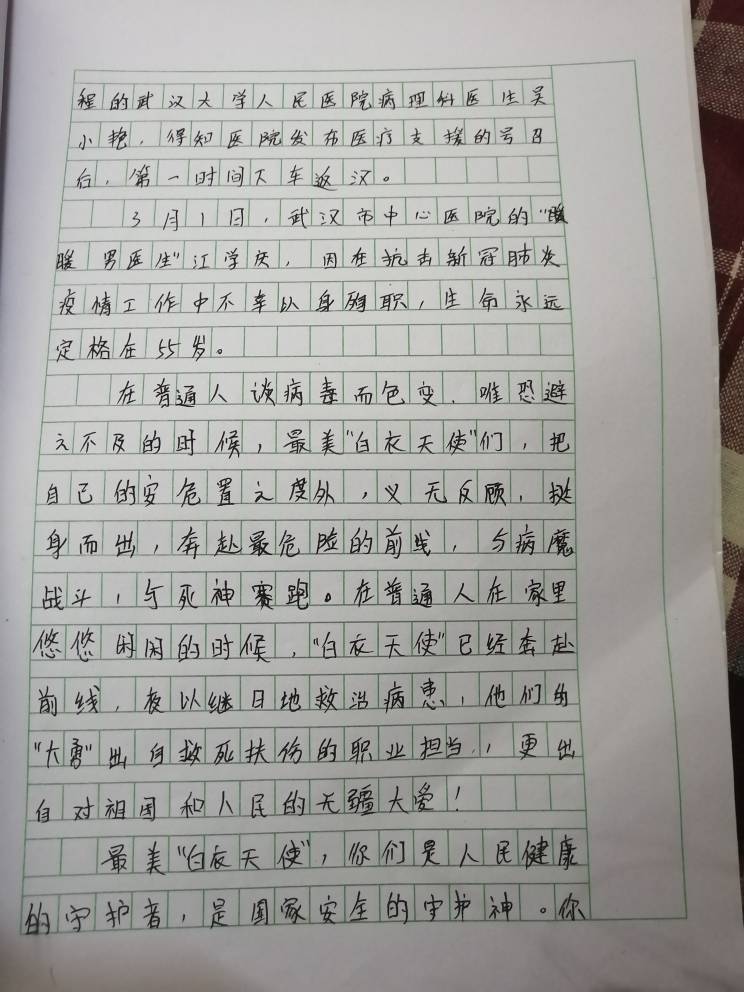 程的武汉大学人民医院病理科医生吴
小艳，得知医院发布医疗支援的号召
后，第一时间下车返汉。
3月1日，武汉市中心医院的“暖
暖男医生”江学庆，因在抗击新冠肺炎
疫情工作中不幸以身殉职，生命永远
定格在55岁。
在普通人谈病毒而色变，唯恐避
之不及的时候，最美“白衣天使”们，把
自己的安危置之度外，义无反顾，挺
身而出，奔赴最危险的前线，与病魔
战斗，与死神赛跑。在普通人在家里
悠悠闲闲的时候，“白衣天使”已经奔赴
前线，夜以继日地救治病患，他们的
“大勇”出自救死扶伤的职业担当，更出
自对祖国和人民的无疆大爱！
最美“白衣天使”，你们是人民健康
的守护者，是国家安全的守护神。你